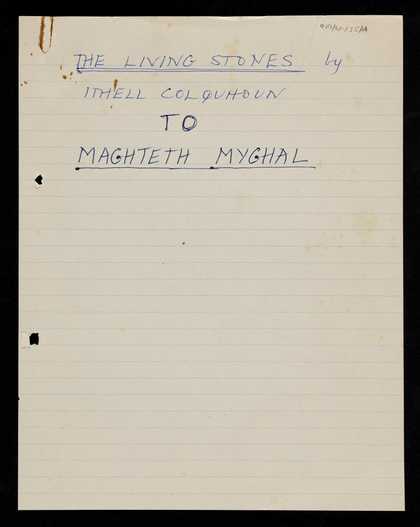 THE LIVING STONES by
ITHELL COLQUHOUN
TO
MAGHTETH MYGHAL